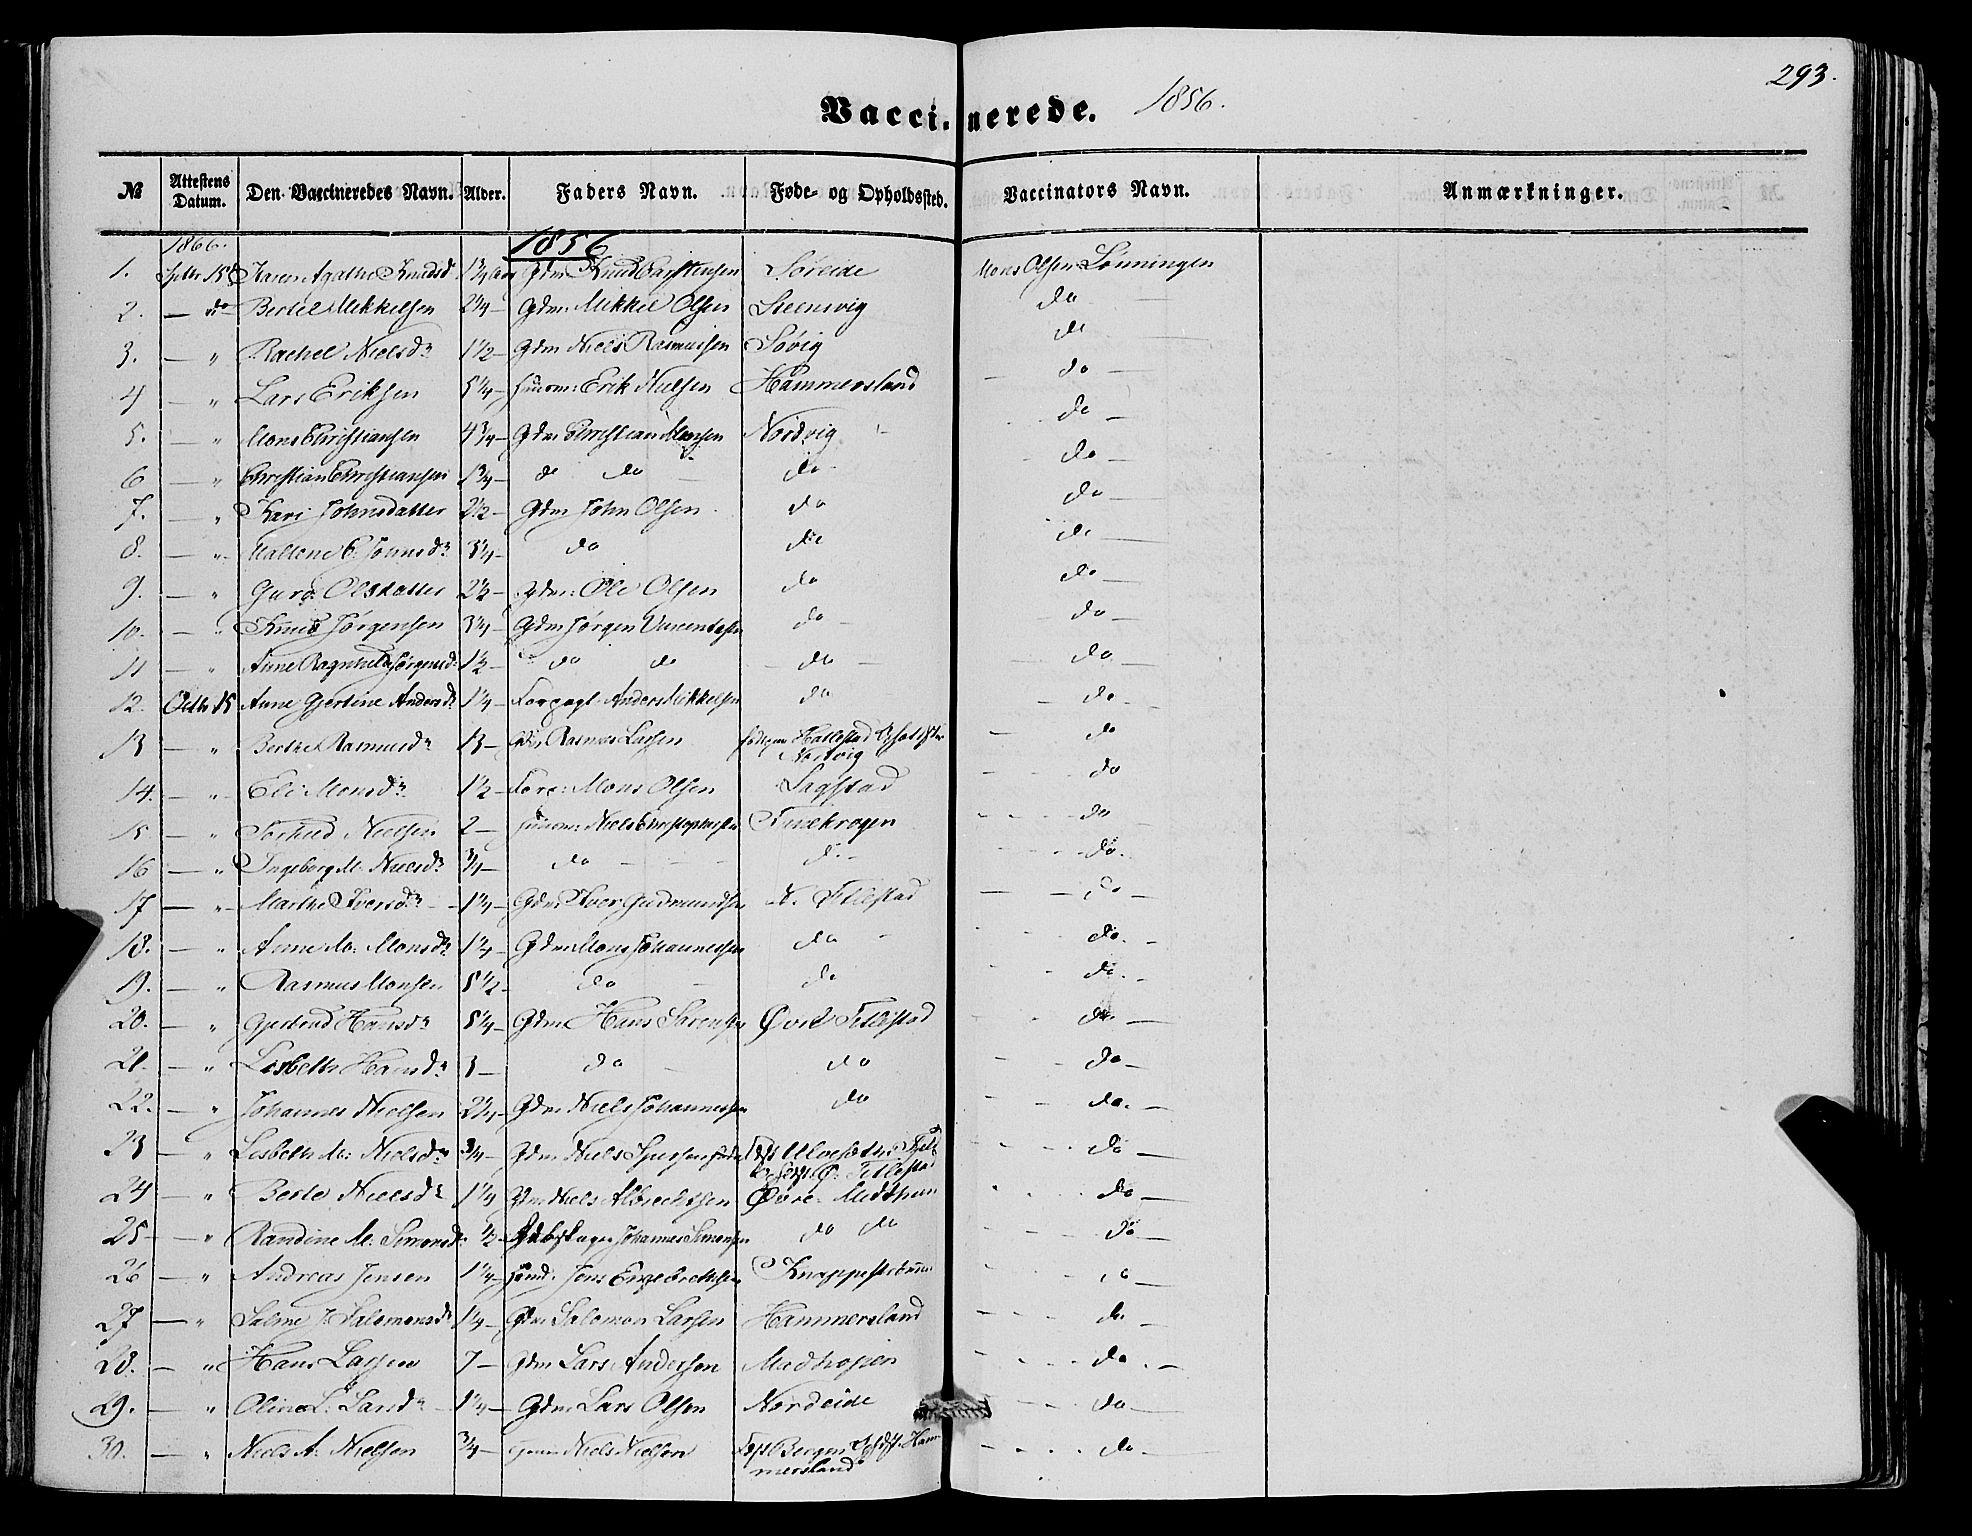 293.
Vaccinerede. 1856.
№ Attestens Datum. Den Vaccineredes Navn. Alder. Faders Navn. Føde- og Opholdssted. Vaccinators Navn. Anmærkninger.
1866. 1856
1. Septbr 15d Karen Agathe Knudsd 1¾ Aar Gdm Knud Carstensen Søreide Mons Olsen Lønningen
2. — do Bertel Mikkelsen 2¼ — Gdm: Mikkel Olsen Steensvig do —
3. — " Rachel Nielsdr 1½ — Gdm Niels Rasmussen Søvig do —
4 — " Lars Eriksen 5¼ — Huusm: Erik Nielsen Hammersland — do —
5. — " Mons Christiansen 4¾ — Gdm Christian Monsen Nordvig do —
6 — " Christian Christiansen 1¾ — do do do — do —
7. — " Kari Johnsdatter 2½ — Gdm John Olsen do do —
8. — " C. Johnsdr 3¼ — do do do —
9. — " Guro Olsdatter 2½ — Gdm: Ole Olsen do do —
10. — " Knud Jørgensen 3¼ — Gdm Jørgen do — do —
11 — " Anne Ragnhild Jørgensd: 1½ — do do do — do —
12. Octbr 15 Anne Gjertine Andersdr 1¼ — Forpagt. Anders Mikkelsen do — do. —
13 — " Berthe Rasmusdr 13 — Gdm Rasmus Larsen Hatlestad — do
Nordvig
14. — " Eli Monsdr 1½ — Forp: Mons Olsen Sagstad do
15 — " Nielsen 2 — Huusm: Niels do
16 — " Ingeborg M. Nielsdr ¾ — do — do — do.
17 — " Marthe Iversdr 1¼ — Gdm Iver Gudmundsen N. Titlestad — do —
18. — " Anne M: Monsdr 1¼ — Gdm Mons Johannessen do do. —
19. — " Rasmus Monsen 5½ — do — do do. —
20. — " Gjertrud Hansdr 5¼ — Gdm Hans Sørensen Øvre Titlestad do. —
21. — " Lisbeth Hansdr 3 — do — do do —
22. — " Johannes Nielsen 2¼ — Gdm Niels Johannessen do do. —
23 — " Lisbeth M: Nielsdr ¾ — Gdm Niels do —
Ø. Titlestad
24 — " Berte Nielsdr 1¼ Gdm Niels Albrechtsen Øvre Midthun do —
25 — " Randine M. Simonsdr ½ — Johannes Simonsen do do do —
26 — " Andreas Jensen 1¼ — Jens Engebrethsen do —
27 — " Salmj J. Salomonsdr 1¼ — Gdm Salomon Larsen Hammersland do —
28. — " Hans Larsen 7 — Gdm Lars Andersen Midthopen do. —
29. — " Oline L. Larsdr 1¼ — Gdm Lars Olsen Nordeide do —
30. — " Niels A. Nielsen ¾ — Niels Nielsen Fdst. Bergen Ham- do —
mersland